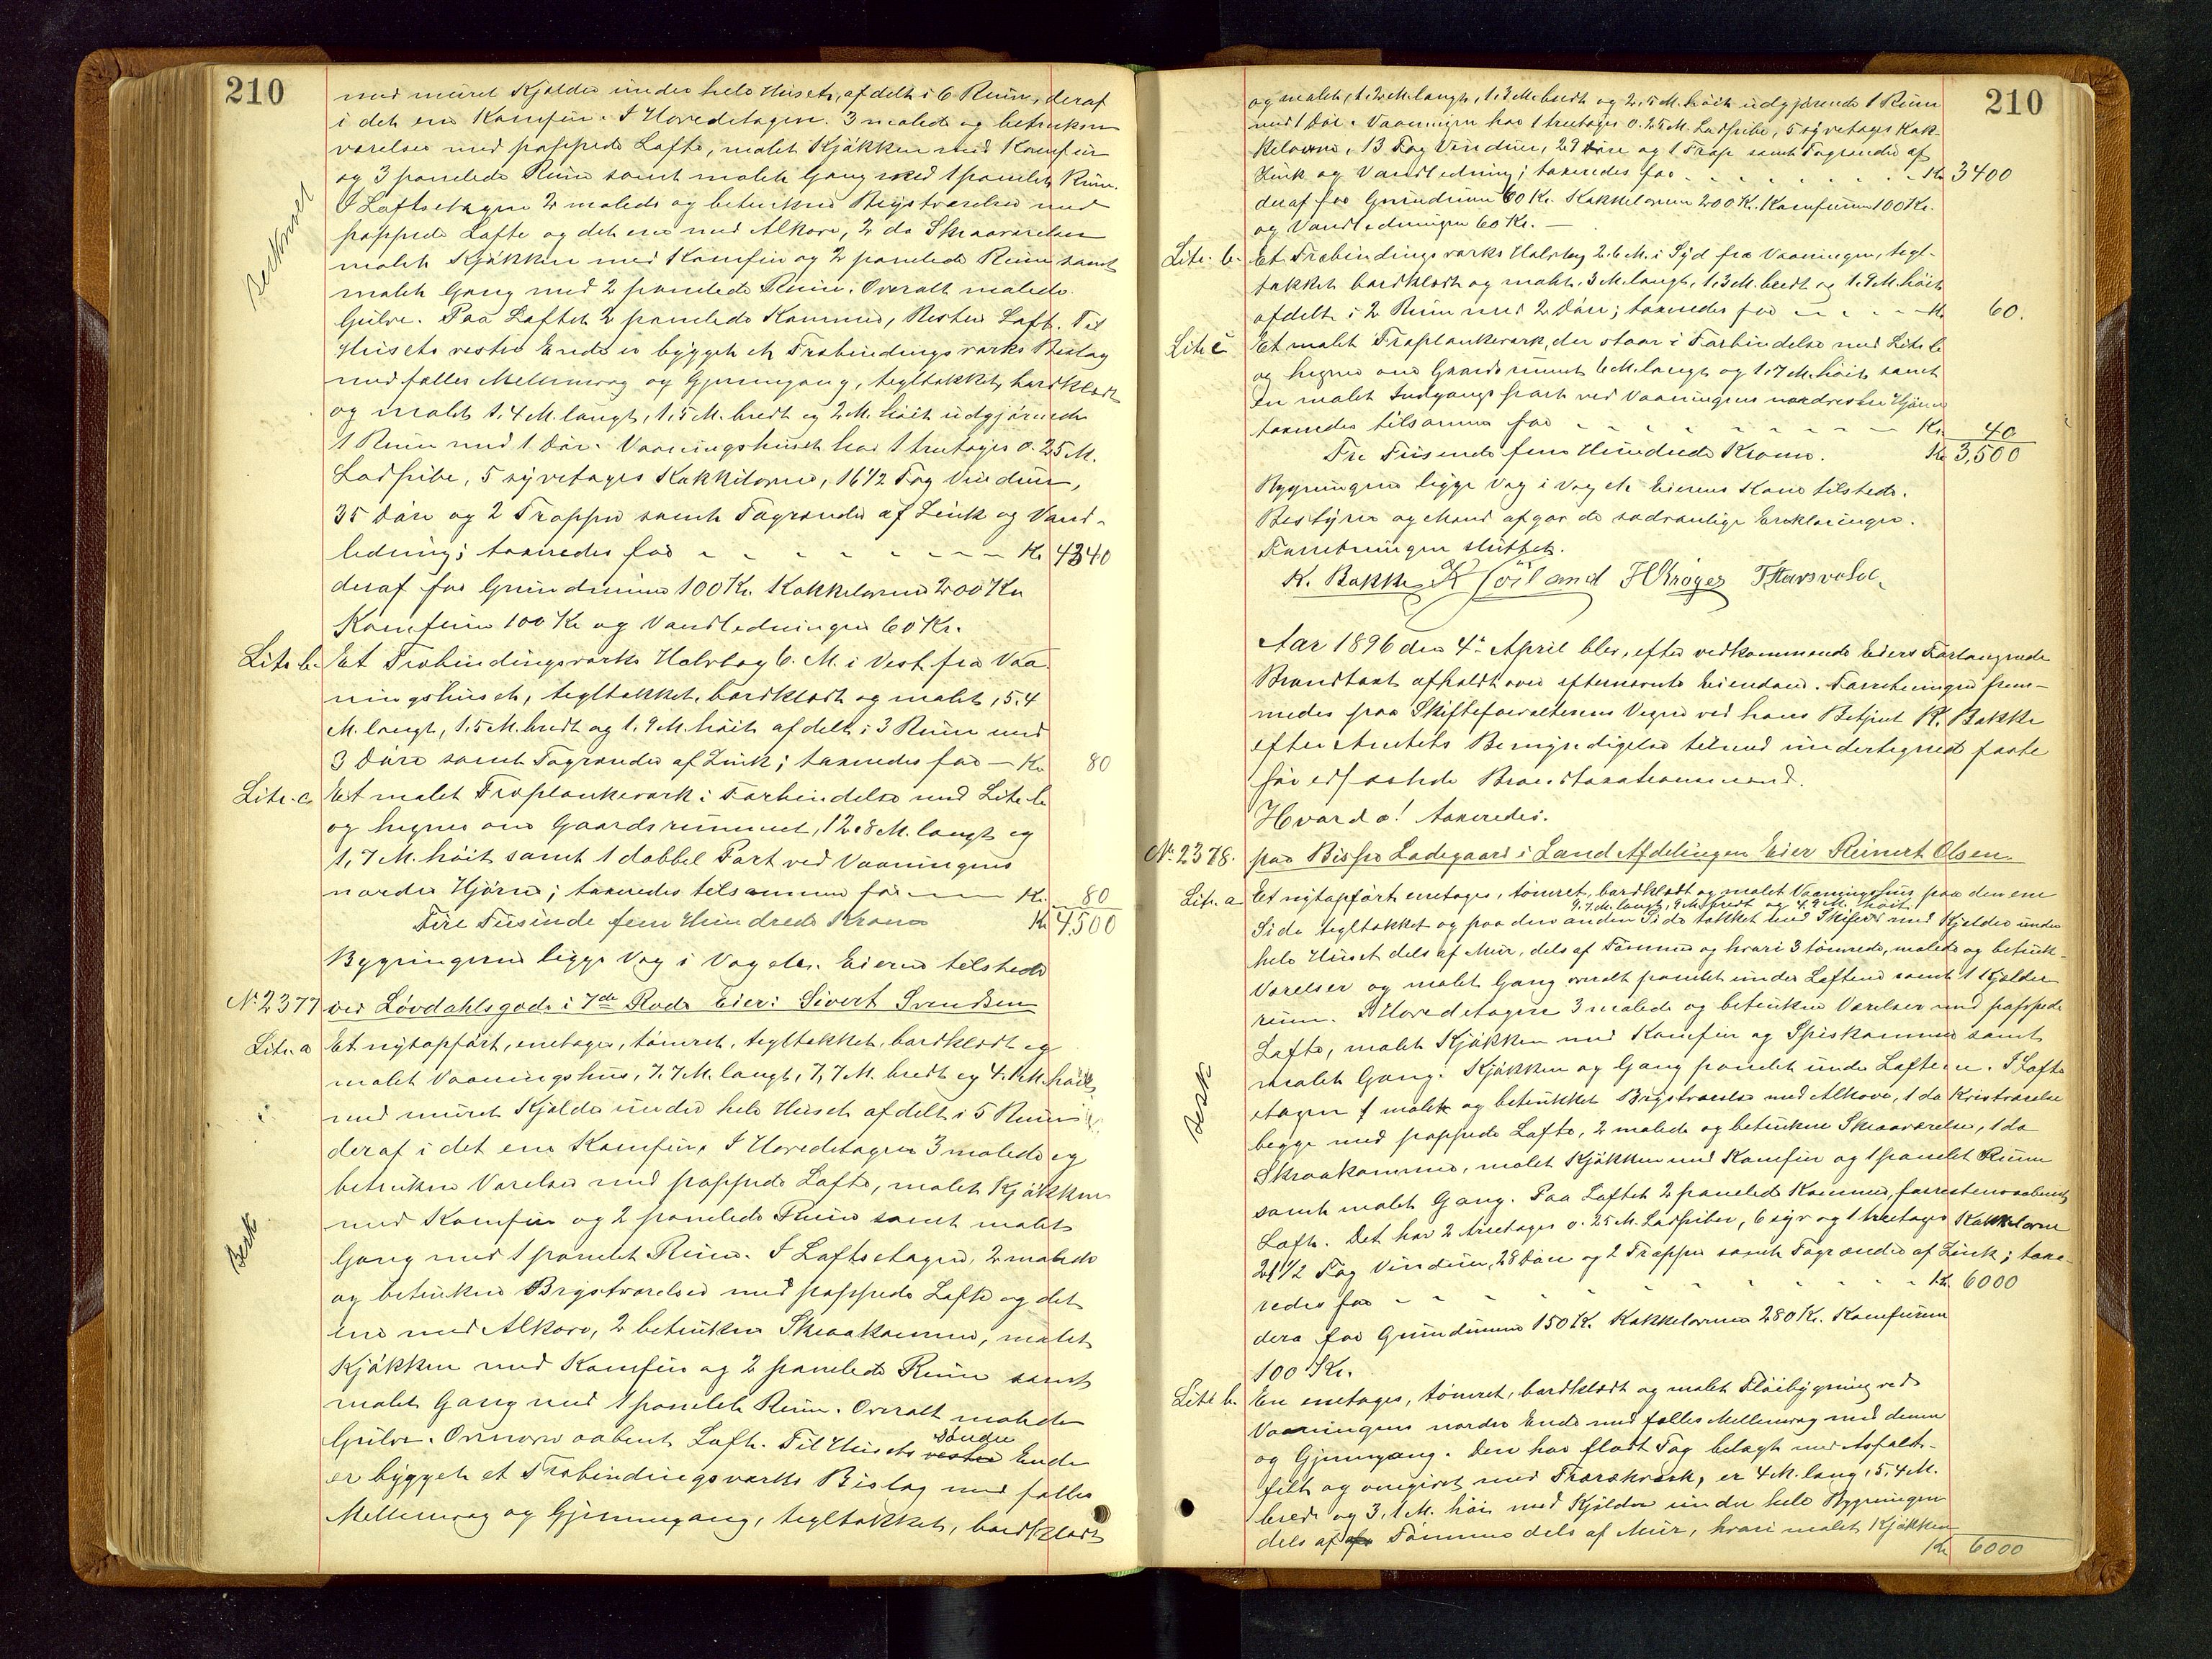 210
med muret Kjelder under hele Huset, afdelt i 6 Rum, deraf
i det ene Komfur. I Hovedetagen 3 malede og betrukne
værelser med pappede Lofte, malet Kjøkken med Komfur
og 3 panelede Rum samt malet Gang med 1 panelet Rum.
I Loftsetagen 2 malede og betrukne Brystværelser med
pappede Lofte og det ene med Alkove, 2 do Skraaværelser
malet Kjøkken med Komfur og 2 panelede Rum samt
malet Gang med 2 panelede Rum. Overalt malede
Gulve. Paa Loftet 2 panelede Kammer, Resten Loft. Til
Husets vestre Ende er bygget et Træbindingsværks Bislag
med fælles Mellemvæg og Gjennemgang, tegltækket, bordklædt
og malet 1,4 M. langt, 1,5 M. bredt og 2 M. høit udgjørende
1 Rum med 1 Dør. Vaaningshuset har 1 treetages 0.25 M.
Ladpibe, 5 syvetages Kakkelovne, 16 1/2 Fag Vinduer,
35 Døre og 2 Trapper samt Tagrender af Zink og Vand-
ledning; taxeredes for - - - - - - - - Kr 4340
deraf for Grundmuren 100 Kr. Kakkelovne 200 Kr
Komfurer 100 Kr og Vandledningen 60 Kr.
Litr b. Et Træbindingsværks Halvtag 6. M. i Vest fra Vaa-
ningshuset, tegltækket, bordklædt og malet, 5,4
M. langt, 1,5 M. bredt og 1,9 M. høit afdelt i 3 Rum med
3 Døre samt Tagrender af Zink; taxeredes for - Kr 80
Litr. c Et malet Træplankeværk i Forbindelse med Litr b
og hegner om Gaardsrummet, 12,8 M. langt og
1,7 M. høit samt 1 dobbel Port ved Vaaningens
nordre Hjørne; taxeredes tilsammen for - - Kr. 80
Fire Tusinde fem Hundrede Kroner Kr 4,500
Bygningerne ligge Væg i Væg etc. Eieren tilstede
No 2377 ved Løvdahlsgade i 7de Rode Eier: Sivert Svendsen
Litr. a Et nyopført, enetages, tømret, tegltækket, bordklædt og
malet Vaaningshus, 7.7 M. langt, 7,7 M. bredt og 4. M. høit
med muret Kjelder under hele Huset afdelt i 5 Rum
deraf i det ene Komfur. I Hovedetagen 3 malede og
betrukne Værelser med pappede Lofte, malet Kjøkken
med Komfur og 2 panelede Rum samt malet
Gang med 1 panelet Rum. I Loftsetagen, 2 malede
og betrukne Brystværelser med pappede Lofte og det
ene med Alkove, 2 betrukne Skraakammer, malet
Kjøkken med Komfur og 2 panelede Rum samt
malet Gang med 1 panelet Rum. Overalt malede
Gulve. Ovenover aabent Loft. Til Husets vestre søndre Ende
er bygget et Træbindingsværks Bislag med fælles
Mellemvæg og Gjennemgang, tegltækket, bordklædt
Besk
210
og malet, 1,2 M. langt, 1,3 M. bredt og 2,5 M. høit udgjørende 1 Rum
med 1 Dør. Vaaningen har 1 treetages 0.25 M. Ladpibe, 5 syvetages Kak-
kelovne, 13 Fag Vinduer, 29 Døre og 1 Trap samt Tagrender af
Zink og Vandledning; taxeredes for - - - - - - Kr 3400
deraf for Grundmuren 60 Kr. Kakkelovnene 200 Kr. Komfurerne 100 Kr.
og Vandledningen 60 Kr. -
Litr. b. Et Træbindingsværks Halvtag 2.6 M. i Syd fra Vaaningen, tegl-
tækket bordklædt og malet, 3 M. langt, 1,3 M. bredt og 1.9 M. høit
afdelt i 2 Rum med 2 Døre; taxeredes for - - - - Kr. 60.
Litr c Et malet Træplankeværk, der staar i Forbindelse med Litr b
og hegner om Gaardsrummet 6 M. langt og 1.7 M. høit samt
en malet Indgangsport ved Vaaningens nordvestre Hjørne
taxeredes tilsammen for - - - - - - - - Kr. 40
Tre Tusinde fem Hundrede Kroner. Kr 3,500
Bygningerne ligge Væg i Væg etc Eierens Kone tilstede.
Bestyrer og Mænd afgav de sædvanlige Erklæringer.
Forretningen sluttet.
K. Bakke H Kroger
Aar 1896 den 4de April blev, efter vedkommende Eiers Forlangende
Brandtaxt afholdt over efternævnte Eiendom. Forretningen frem-
medes paa Skifteforvalterens Vegne ved hans Betjent K. Bakke
efter Amtets Bemyndigelse tilmed undertegnede faste
før edfæstede Brandtaxationsmænd.
Hvorda! taxeredes.
No 2378. paa Bispe Ladegaard i Land Afdelingen Eier Reinert Olsen.
Litr. a Et nyopført enetages, tømret, bordklædt og malet Vaaningshus paa den ene
9.7 M. langt, 9 M. bredt og 4.9 M. høit
Side tegltækket og paa den anden Side tækket med Skifer med Kjelder under
hele Huset dels af Mur, dels af Tømmer og hvori 3 tømrede, malede og betruk-
Værelser og malet Gang overalt panelet under Loftene samt 1 Kjelder
rum. I Hovedetagen 3 malede og betrukne Værelser med pappede
Lofte, malet Kjøkken med Komfur og Spiskammer samt
malet Gang. Kjøkken og Gang panelet under Loftene. I Lofts
etagen 1 malet og betrukket Brystværelse med Alkove, 1 do Kvistværelse
begge med pappede Lofte, 2 malede og betrukne Skraaværelser, 1 do
Skraakammer, malet Kjøkken med Komfur og 1 panelet Rum
samt malet Gang. Paa Loftet 2 panelede Kammer, forresten aabent
Loft. Det har 2 treetages 0.25 M. Ladpiber, 6 syv og 1 treetages Kakkelovne
21 1/2 Fag Vinduer, 28 Døre og 2 Trapper samt Tagrender af Zink; taxe-
redes for - - - - - - - - Kr. 6000
dera for Grundmuren 150 Kr. Kakkelovnene 280 Kr. Komfurerne
100 Kr.
Litr b. En enetages, tømret, bordklædt og malet Fløibygning ved
Vaaningens nordre Ende med fælles Mellemvæg med denne
og Gjennemgang. Den har fladt Tag belagt med Asfalt-
filt og omgivet med Trærækværk, er 4 M. lang, 5,4 M.
bred og 3,1 M. høi med Kjelder under hele Bygningen
dels af Tømmer dels af Mur, hvori malet Kjøkken
Kr 6000
Besk